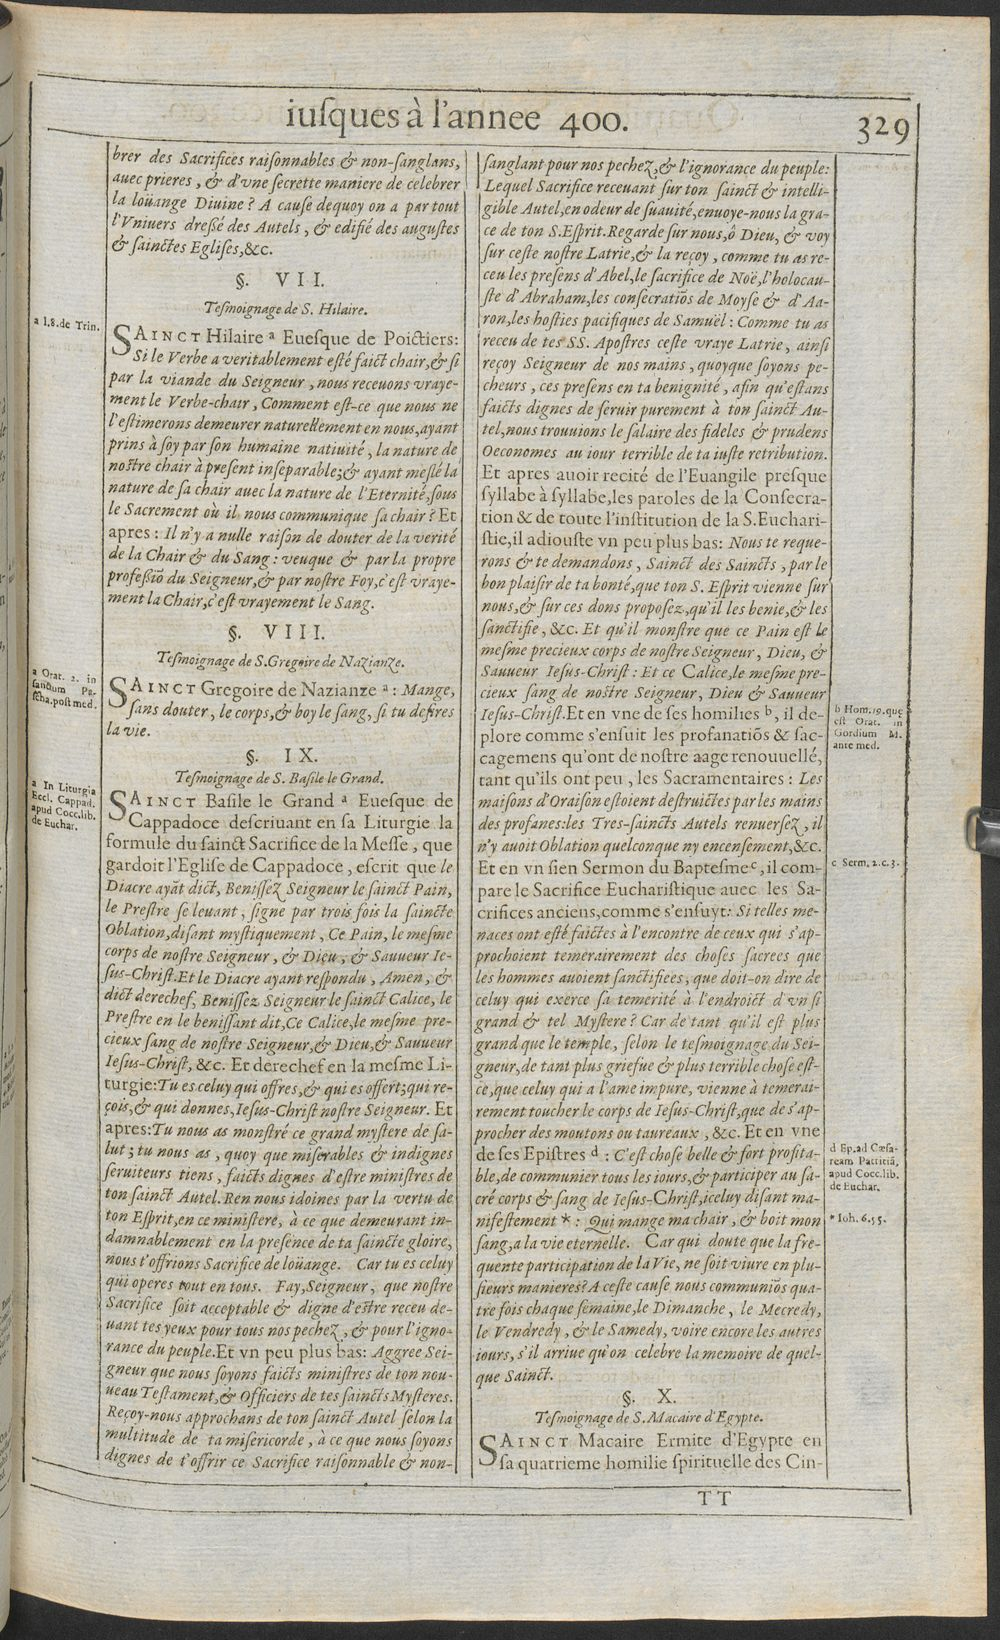 iuſques à l'annee 400.
329
brer des Sacrifices raiſonnables & non-ſanglans,
auec prieres, & d'vne ſecrette maniere de celebrer
la loüange Diuine? A cauſe dequoy on a par tout
l'Vniuers dreßé des Autels, & edifié des auguſtes
& ſainctes Egliſes,&c.
§. VII.
Teſmoignage de S. Hilaire.
a l.8.de Trin.
SAINCT Hilaire ª Eueſque de Poictiers:
Si le Verbe a veritablement eſté faict chair,& ſi
par la viande du Seigneur, nous receuons vraye-
ment le Verbe-chair, Comment eſt-ce que nous ne
l'eſtimerons demeurer naturellement en nous,ayant
prins à ſoy par ſon humaine natiuité, la nature de
noſtre chair à preſent inſeparable;& ayant meſlé la
nature de ſa chair auec la nature de l'Eternité,ſous
le Sacrement où il nous communique ſa chair? Et
apres: Il n'y a nulle raiſon de douter de la verité
de la Chair & du Sang: veuque & par la propre
profeßiõ du Seigneur,& par noſtre Foy,c'eſt vraye-
ment la Chair,c'eſt vrayement le Sang.
§. VIII.
Teſmoignage de S.Gregoire de Nazianze.
a Orat. 2. in
ſanctum Pa-
ſcha.poſt med.
SAINCT Gregoire de Nazianze ª: Mange,
ſans douter, le corps,& boy le ſang, ſi tu deſires
la vie.
§. IX.
Teſmoignage de S. Baſile le Grand.
a In Liturgia
Eccl. Cappad.
apud Cocc.lib.
de Euchar.
SAINCT Baſile le Grand ª Eueſque de
Cappadoce deſcriuant en ſa Liturgie la
formule du ſainct Sacrifice de la Meſſe, que
gardoit l'Egliſe de Cappadoce, eſcrit que le
Diacre ayãt dict, Beniſſez Seigneur le ſainct Pain,
le Preſtre ſe leuant, ſigne par trois fois la ſaincte
Oblation,diſant myſtiquement, Ce Pain, le meſme
corps de noſtre Seigneur, & Dieu, & Sauueur Ie-
ſus-Chriſt.Et le Diacre ayant reſpondu, Amen, &
dict derechef, Beniſſez Seigneur le ſainct Calice, le
Preſtre en le beniſſant dit,Ce Calice,le meſme pre-
cieux ſang de noſtre Seigneur,& Dieu,& Sauueur
Ieſus-Chriſt, &c. Et derechef en la meſme Li-
turgie:Tu es celuy qui offres,& qui es offert;qui re-
çois,& qui donnes,Ieſus-Chriſt noſtre Seigneur. Et
apres:Tu nous as monſtré ce grand myſtere de ſa-
lut; tu nous as, quoy que miſerables & indignes
ſeruiteurs tiens, faicts dignes d'eſtre miniſtres de
ton ſainct Autel. Ren nous idoines par la vertu de
ton Eſprit,en ce miniſtere, à ce que demeurant in-
damnablement en la preſence de ta ſaincte gloire,
nous t'offrions Sacrifice de loüange. Car tu es celuy
qui operes tout en tous. Fay,Seigneur, que noſtre
Sacrifice ſoit acceptable & digne d'eſtre receu de-
uant tes yeux pour tous nos pechez, & pour l'igno-
rance du peuple.Et vn peu plus bas: Aggree Sei-
gneur que nous ſoyons faicts miniſtres de ton nou-
ueau Teſtament,& Officiers de tes ſaincts Myſteres.
Reçoy-nous approchans de ton ſainct Autel ſelon la
multitude de ta miſericorde, à ce que nous ſoyons
dignes de t'offrir ce Sacrifice raiſonnable & non-
ſanglant pour nos pechez,& l'ignorance du peuple:
Lequel Sacrifice receuant ſur ton ſainct & intelli-
gible Autel,en odeur de ſuauité,enuoye-nous la gra-
ce de ton S.Eſprit.Regarde ſur nous,ô Dieu, & voy
ſur ceſte noſtre Latrie,& la reçoy, comme tu as re-
ceu les preſens d'Abel,le ſacrifice de Noë,l'holocau-
ſte d'Abraham,les conſecratiõs de Moyſe & d'Aa-
ron,les hoſties pacifiques de Samuël: Comme tu as
receu de tes SS. Apoſtres ceſte vraye Latrie, ainſi
reçoy Seigneur de nos mains, quoyque ſoyons pe-
cheurs, ces preſens en ta benignité, afin qu'eſtans
faicts dignes de ſeruir purement à ton ſainct Au-
tel,nous trouuions le ſalaire des fideles & prudens
Oeconomes au iour terrible de ta iuſte retribution.
Et apres auoir recité de l'Euangile preſque
ſyllabe à ſyllabe,les paroles de la Conſecra-
tion & de toute l'inſtitution de la S.Euchari-
ſtie,il adiouſte vn peu plus bas: Nous te reque-
rons & te demandons, Sainct des Saincts, par le
bon plaiſir de ta bonté,que ton S. Eſprit vienne ſur
nous,& ſur ces dons propoſez,qu'il les benie,& les
ſanctifie, &c. Et qu'il monſtre que ce Pain eſt le
meſme precieux corps de noſtre Seigneur, Dieu, &
Sauueur Ieſus-Chriſt: Et ce Calice,le meſme pre-
cieux ſang de noſtre Seigneur, Dieu & Sauueur
Ieſus-Chriſt.Et en vne de ſes homilies ᵇ, il de-
plore comme s'enſuit les profanatiõs & ſac-
cagemens qu'ont de noſtre aage renouuellé,
tant qu'ils ont peu, les Sacramentaires: Les
maiſons d'Oraiſon eſtoient deſtruictes par les mains
des profanes:les Tres-ſaincts Autels renuerſez, il
n'y auoit Oblation quelconque ny encenſement,&c.
Et en vn ſien Sermon du Bapteſme ᶜ, il com-
pare le Sacrifice Euchariſtique auec les Sa-
crifices anciens,comme s'enſuyt: Si telles me-
naces ont eſté faictes à l'encontre de ceux qui s'ap-
prochoient temerairement des choſes ſacrees que
les hommes auoient ſanctifiees, que doit-on dire de
celuy qui exerce ſa temerité à l'endroict d'vn ſi
grand & tel Myſtere? Car de tant qu'il eſt plus
grand que le temple, ſelon le teſmoignage du Sei-
gneur,de tant plus griefue & plus terrible choſe eſt-
ce,que celuy qui a l'ame impure, vienne à temerai-
rement toucher le corps de Ieſus-Chriſt,que de s'ap-
procher des moutons ou taureaux, &c. Et en vne
de ſes Epiſtres ᵈ: C'eſt choſe belle & fort profita-
ble,de communier tous les iours,& participer au ſa-
cré corps & ſang de Ieſus-Chriſt,iceluy diſant ma-
nifeſtement *: Qui mange ma chair, & boit mon
ſang,a la vie eternelle. Car qui doute que la fre-
quente participation de la Vie, ne ſoit viure en plu-
ſieurs manieres? A ceſte cauſe nous communiõs qua-
tre fois chaque ſemaine,le Dimanche, le Mecredy,
le Vendredy, & le Samedy, voire encore les autres
iours, s'il arriue qu'on celebre la memoire de quel-
que Sainct.
b Hom.19.que
eſt Orat. in
Gordium M.
ante med.
c Serm. 2.c.3.
d Ep.ad Cæſa-
ream Patritiã,
apud Cocc.lib.
de Euchar.
* Ioh. 6.55.
§. X.
Teſmoignage de S. Macaire d'Egypte.
SAINCT Macaire Ermite d'Egypte en
ſa quatrieme homilie ſpirituelle des Cin-
TT